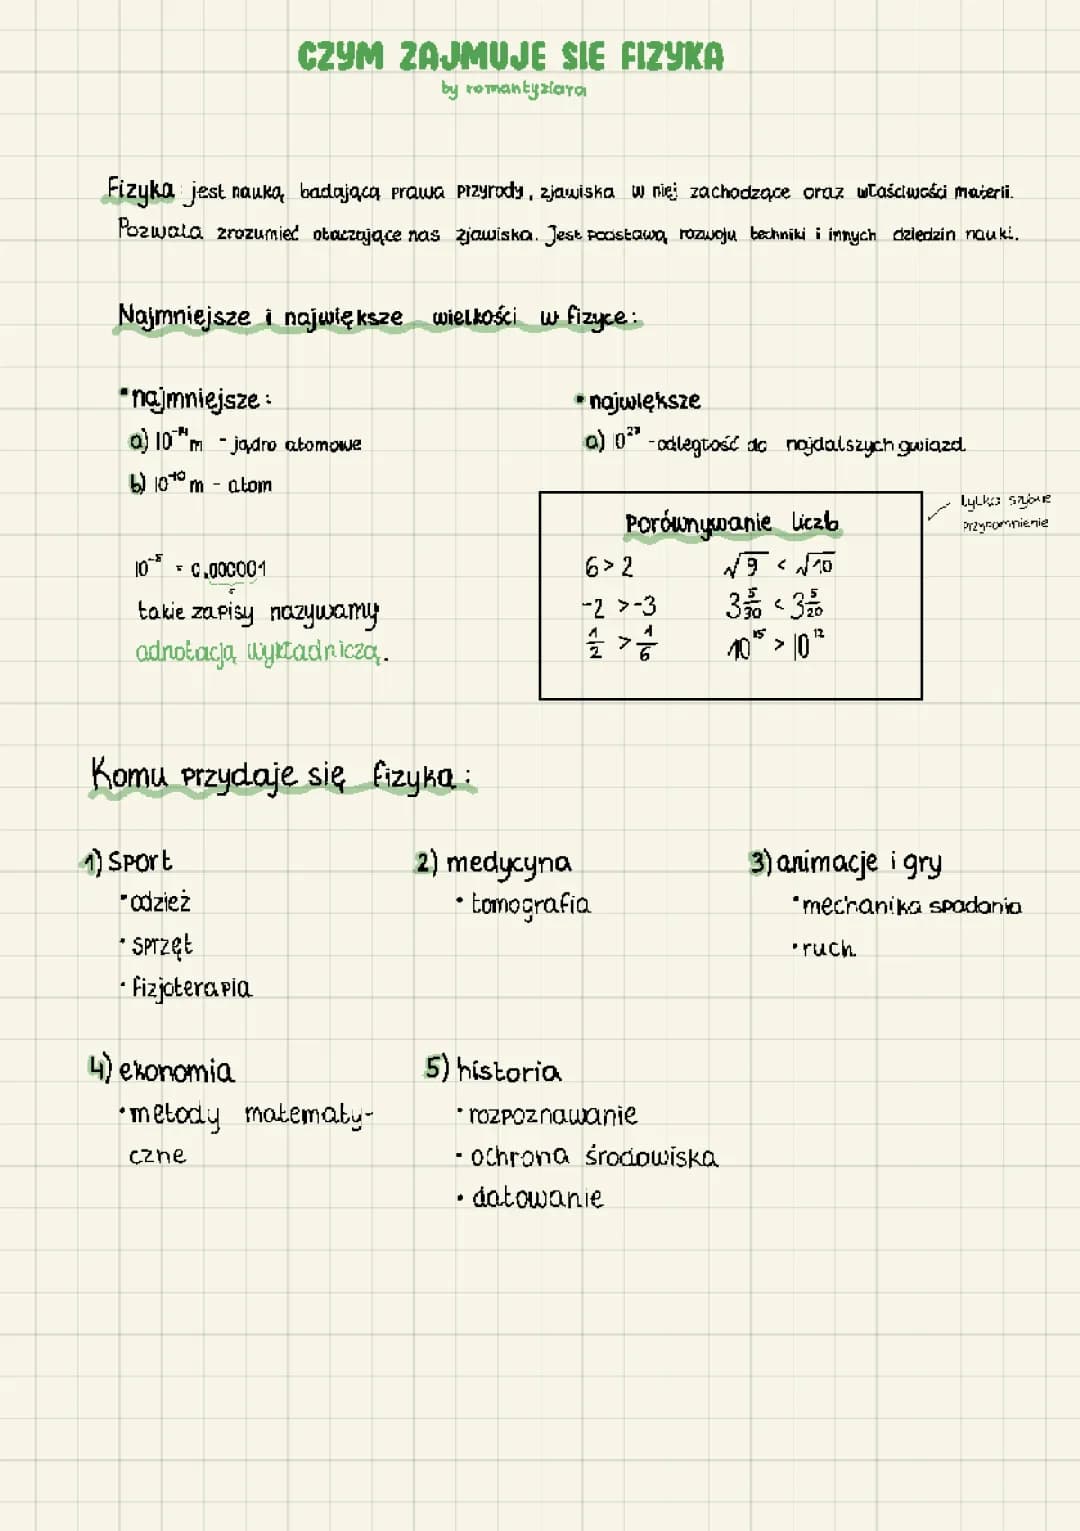 CZYM ZAJMUJE SIE FIZYKA
by romantyziara
Fizyka jest nauką badającą prawa przyrody, zjawiska w niej zachodzące oraz właściwości materii.
Pozwala zrozumieć otaczające nas zjawiska. Jest podstawą rozwoju techniki i innych dziedzin nauki.
Najmniejsze i największe wielkości w fizyce:
• najmniejsze:
a) 10⁻¹⁴ m - jądro atomowe
b) 10⁻¹⁰ m - atom
10⁻⁵ = 0,000001
5
takie zapisy nazywamy
adnotacją wykładniczą.
• największe
a) 10²⁷ - odległość do najdalszych gwiazd.
tylko szybkie
przypomnienie
Porównywanie liczb
6 > 2 √9 < √10
-2 > -3 3 5/30 < 3 5/20
1/2 > 1/6 10¹⁵ > 10¹²
Komu przydaje się fizyka:
1) sport
• odzież
• sprzęt
• fizjoterapia
2) medycyna
• tomografia
3) animacje i gry
• mechanika spadania
• ruch
4) ekonomia
• metody matematy-
czne
5) historia
• rozpoznawanie
• ochrona środowiska
• datowanie